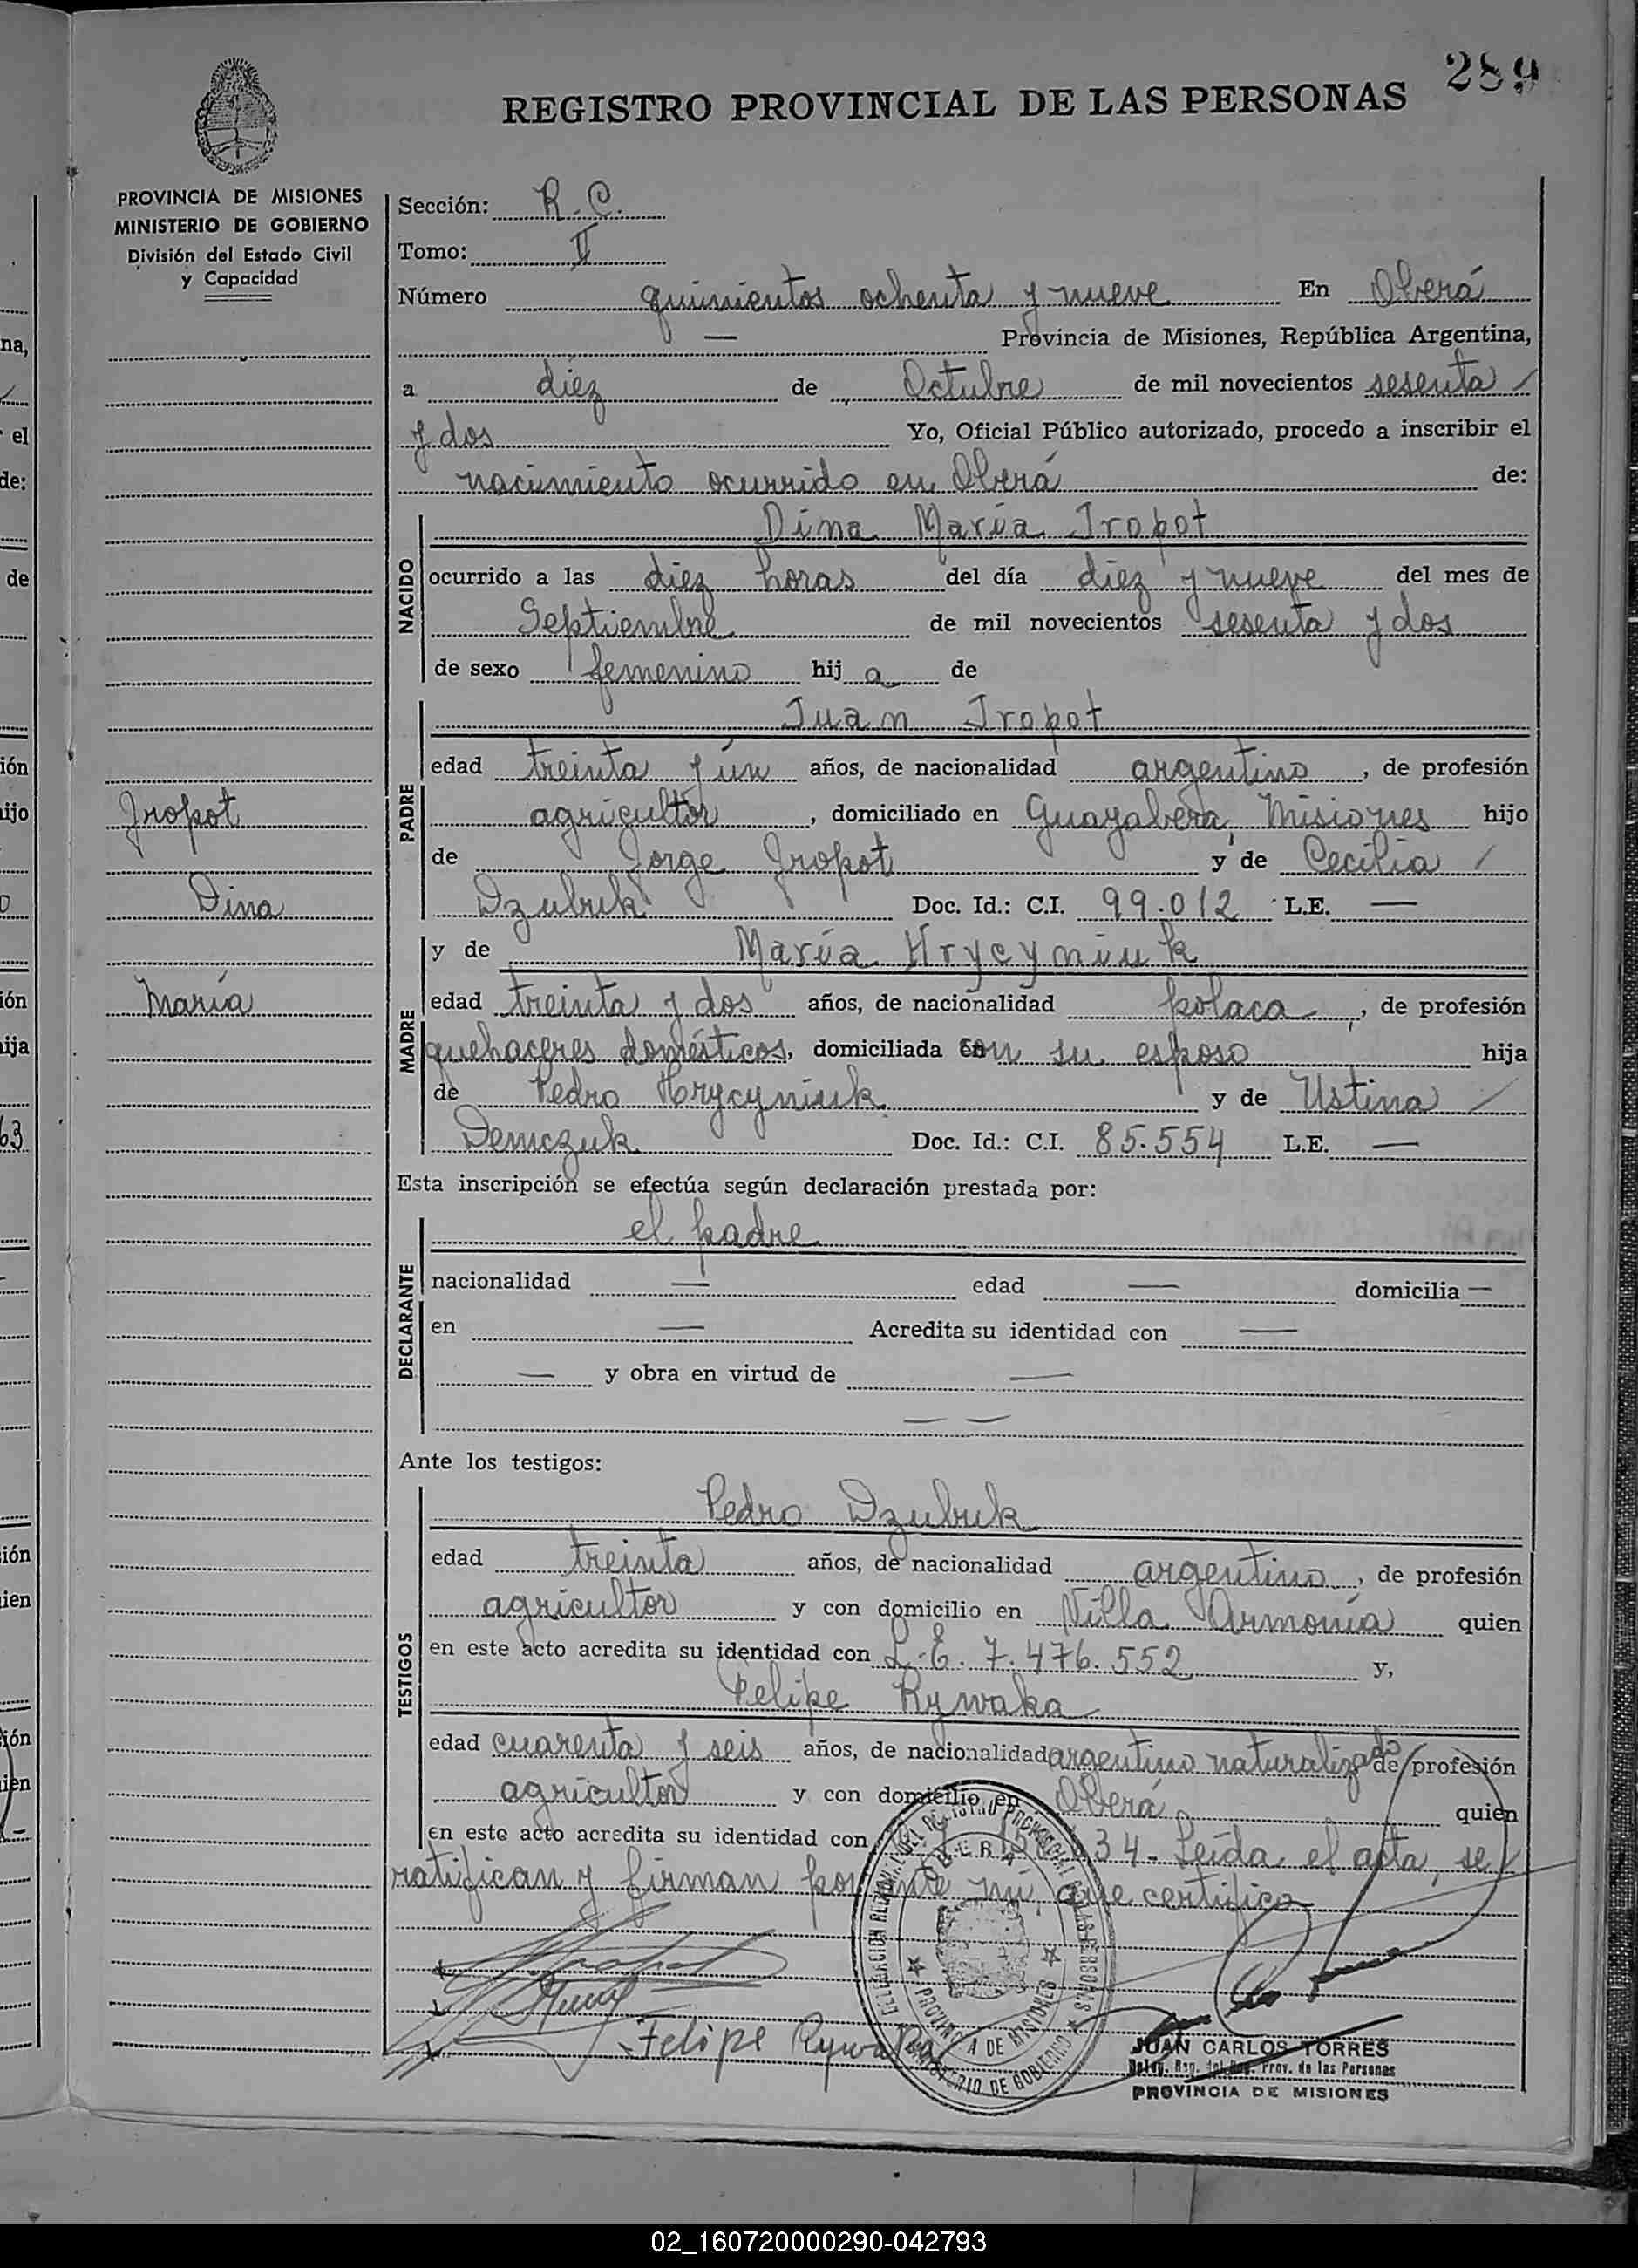 289
REGISTRO PROVINCIAL DE LAS PERSONAS
PROVINCIA DE MISIONES
MINISTERIO DE GOBIERNO
División del Estado Civil
y Capacidad
Sección: R. C.
Tomo: II
Número quinientos ochenta y nueve En Oberá
— Provincia de Misiones, República Argentina,
a diez de Octubre de mil novecientos sesenta
y dos Yo, Oficial Público autorizado, procedo a inscribir el
nacimiento ocurrido en Oberá de:
NACIDO
Dina María Jropot
ocurrido a las diez horas del día diez y nueve del mes de
Septiembre de mil novecientos sesenta y dos
de sexo femenino hij a de
PADRE
Juan Jropot
edad treinta y ún años, de nacionalidad argentino, de profesión
agricultor, domiciliado en Guayabera, Misiones hijo
de Jorge Jropot y de Cecilia
Dzubuk Doc. Id.: C.I. 99.012 L.E. —
Jropot
Dina
María
MADRE
y de María Hrycyniuk
edad treinta y dos años, de nacionalidad polaca, de profesión
quehaceres domésticos, domiciliada con su esposo hija
de Pedro Hrycyniuk y de Ustina
Demczuk Doc. Id.: C.I. 85.554 L.E. —
Esta inscripción se efectúa según declaración prestada por:
DECLARANTE
el padre
nacionalidad — edad — domicilia —
en — Acredita su identidad con —
— y obra en virtud de —
— —
Ante los testigos:
TESTIGOS
Pedro Dzubuk
edad treinta años, de nacionalidad argentino, de profesión
agricultor y con domicilio en Villa Armonía quien
en este acto acredita su identidad con L.E. 7.476.552 y,
Felipe Rywaka
edad cuarenta y seis años, de nacionalidad argentino naturalizado de profesión
agricultor y con domicilio en Oberá quien
en este acto acredita su identidad con 34.- Leída el acta, se
ratifican y firman por ante mí que certifico
Felipe Rywaka
OBERÁ
PROVINCIA DE MISIONES
MINISTERIO DE GOBIERNO
JUAN CARLOS TORRES
Prov. de las Personas
PROVINCIA DE MISIONES
02_160720000290-042793